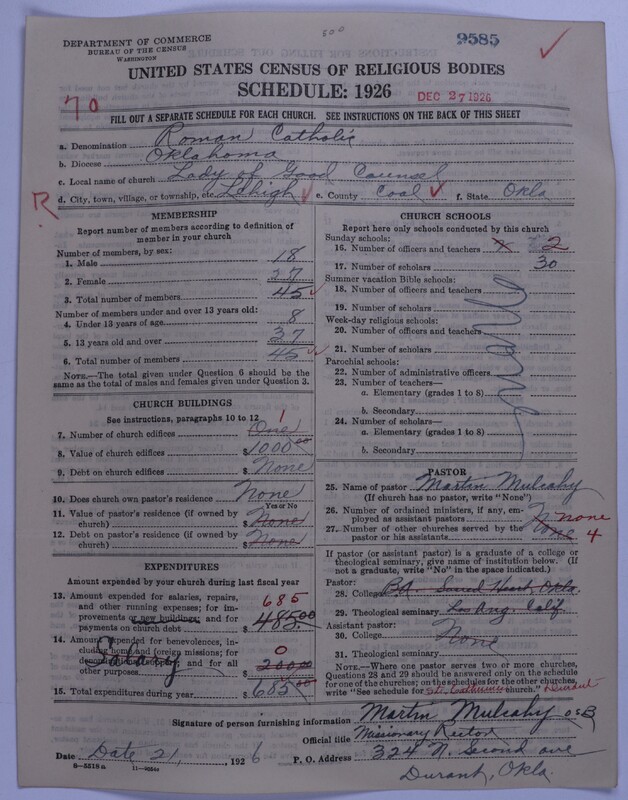 DEPARTMENT OF COMMERCE
BUREAU OF THE CENSUS
WASHINGTON
500
9585
UNITED STATES CENSUS OF RELIGIOUS BODIES
SCHEDULE: 1926
DEC 27 1926
70
FILL OUT A SEPARATE SCHEDULE FOR EACH CHURCH. SEE INSTRUCTIONS ON THE BACK OF THIS SHEET
a. Denomination Roman Catholic
b. Diocese Oklahoma
c. Local name of church Lady of Good Counsel
R d. City, town, village, or township, etc. Lehigh e. County Coal f. State Okla
MEMBERSHIP
Report number of members according to definition of
member in your church
Number of members, by sex:
1. Male 18
2. Female 27
3. Total number of members 45
Number of members under and over 13 years old:
4. Under 13 years of age 8
5. 13 years old and over 37
6. Total number of members 45
NOTE.—The total given under Question 6 should be the
same as the total of males and females given under Question 3.
CHURCH BUILDINGS
See instructions, paragraphs 10 to 12
7. Number of church edifices One 1
8. Value of church edifices $1000.00
9. Debt on church edifices $ None
10. Does church own pastor's residence None
Yes or No
11. Value of pastor's residence (if owned by
church) $ None
12. Debt on pastor's residence (if owned by
church) $ None
EXPENDITURES
Amount expended by your church during last fiscal year
13. Amount expended for salaries, repairs,
and other running expenses; for im-
provements or new buildings; and for
payments on church debt $ 485.00 685
14. Amount expended for benevolences, in-
cluding home and foreign missions; for
denominational support; and for all
other purposes $ 200.00 0
Salary
15. Total expenditures during year $ 685.00
CHURCH SCHOOLS
Report here only schools conducted by this church
Sunday schools:
16. Number of officers and teachers x 2
17. Number of scholars 30
Summer vacation Bible schools:
18. Number of officers and teachers
19. Number of scholars
Week-day religious schools:
20. Number of officers and teachers
21. Number of scholars
Parochial schools:
22. Number of administrative officers
23. Number of teachers—
a. Elementary (grades 1 to 8)
b. Secondary
24. Number of scholars—
a. Elementary (grades 1 to 8)
b. Secondary
None
PASTOR
25. Name of pastor Martin Mulcahy
(If church has no pastor, write "None")
26. Number of ordained ministers, if any, em-
ployed as assistant pastors none
27. Number of other churches served by the
pastor or his assistants None 4
If pastor (or assistant pastor) is a graduate of a college or
theological seminary, give name of institution below. (If
not a graduate, write "No" in the space indicated.)
Pastor:
28. College B.A. Sacred Heart, Okla.
29. Theological seminary Los Ang. Calif.
Assistant pastor:
30. College None
31. Theological seminary
NOTE.—Where one pastor serves two or more churches,
Questions 28 and 29 should be answered only on the schedule
for one of the churches; on the schedules for the other churches,
write "See schedule for St. Catherine church." Durant
Signature of person furnishing information Martin Mulcahy OSB
Official title Missionary Rector
Date Date 21, 1926 P. O. Address 324 N. Second ave
8—5518a 11—9054a
Durant, Okla.